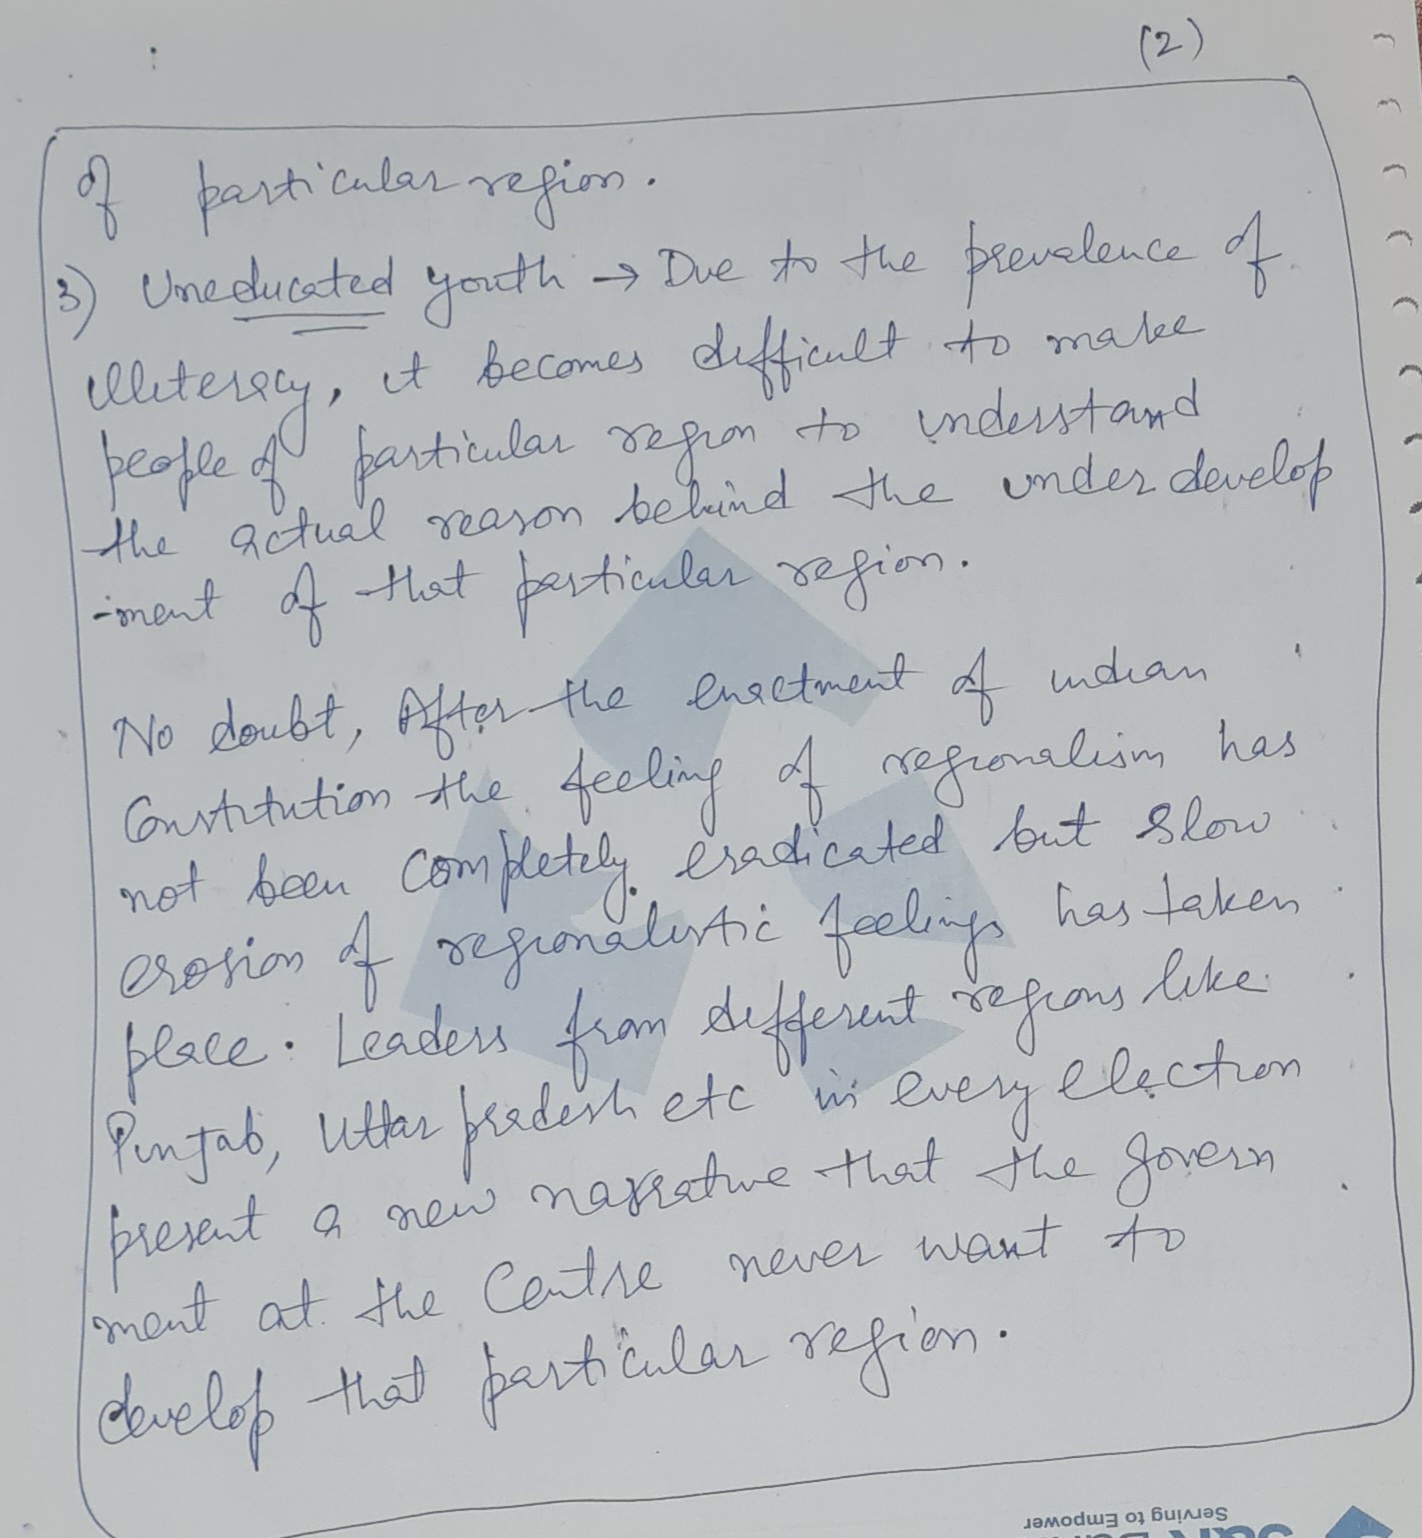 (2)
of particular region.
3) Uneducated youth → Due to the prevalence of
illiteracy, it becomes difficult to make
people of particular region to understand
the actual reason behind the under develop
-ment of that particular region.
No doubt, After the enactment of indian
Constitution the feeling of regionalism has
not been completely eradicated but slow
erosion of regionalistic feelings has taken
place. Leaders from different regions like
Punjab, Uttar pradesh etc in every election
present a new narrative that the govern
ment at the Centre never want to
develop that particular region.
Serving to Empower